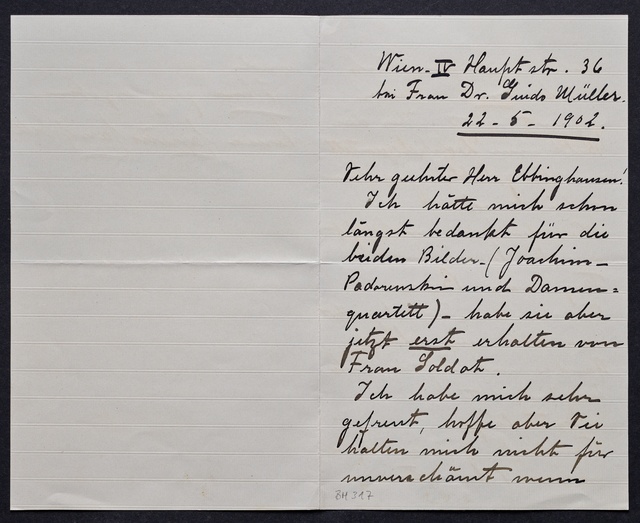 Wien - IV Hauptstr. 36
bei Frau Dr. Guido Müller.
22 - 5 - 1902.
Sehr geehrter Herr Ebbinghausen!
Ich hätte mich schon
längst bedankt für die
beiden Bilder - (Joachim -
Padarewski und Damen=
quartett) - habe sie aber
jetzt erst erhalten von
Frau Soldat.
Ich habe mich sehr
gefreut, hoffe aber Sie
halten mich nicht für
unverschämt wenn
BH 317